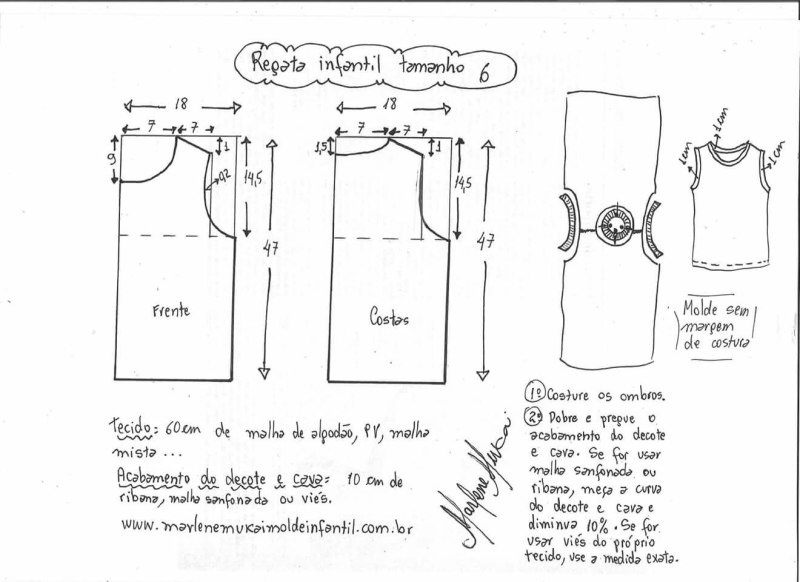 Regata infantil tamanho 6
18
7 7
9
1
0,2
14,5
47
Frente
18
7 7
1,5
1
14,5
47
Costas
1cm
1cm
1cm
Molde sem
margem
de costura
Tecido: 60cm de malha de algodão, PV, malha
mista ...
Acabamento do decote e cava: 10 cm de
ribana, malha sanfonada ou viés.
www.marlenemukaimoldeinfantil.com.br
Marlene Mukai
1º Costure os ombros.
2º Dobre e pregue o
acabamento do decote
e cava. Se for usar
malha sanfonada ou
ribana, meça a curva
do decote e cava e
diminua 10%. Se for
usar viés do próprio
tecido, use a medida exata.